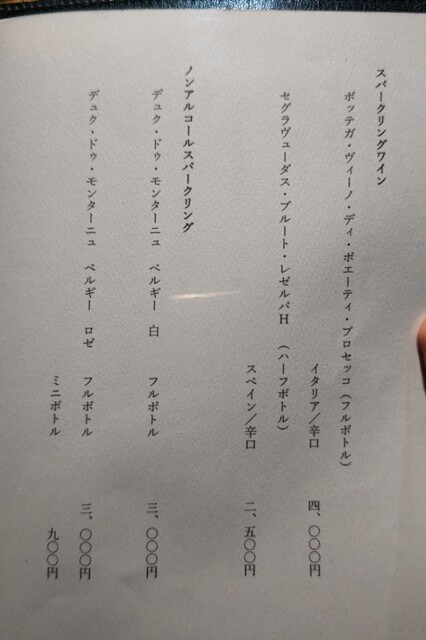 スパークリングワイン
ボッテガ・ヴィーノ・ディ・ポエーティ・プロセッコ（フルボトル）
イタリア／辛口　四、〇〇〇円
セグラヴューダス・ブルート・レゼルバH　（ハーフボトル）
スペイン／辛口　二、五〇〇円
ノンアルコールスパークリング
デュク・ドゥ・モンターニュ　ベルギー　白　フルボトル　三、〇〇〇円
デュク・ドゥ・モンターニュ　ベルギー　ロゼ　フルボトル　三、〇〇〇円
ミニボトル　九〇〇円